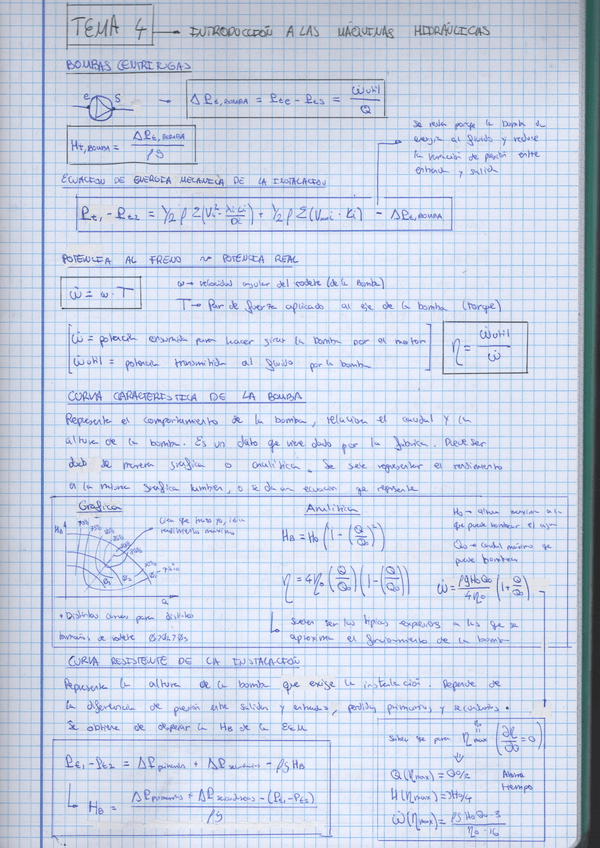 TEMA 4 → INTRODUCCIÓN A LAS MÁQUINAS HIDRÁULICAS
BOMBAS CENTRIFUGAS
e S → ΔPt,BOMBA = Pte - Pts = ẇutil / Q
Ht,BOMBA = ΔPt,BOMBA / ρg
Se resta porque la bomba da
energía al fluido y reduce
la variación de presión entre
entrada y salida
ECUACION DE ENERGÍA MECANICA DE LA INSTALACION
Pt1 - Pt2 = 1/2 ρ Σ(Vi² · λi Li / Di) + 1/2 ρ Σ( · Ki) - ΔPt,BOMBA
POTENCIA AL FRENO ~ POTENCIA REAL
ẇ = ω · T
ω → velocidad angular del rodete (de la bomba)
T → Par de fuerza aplicado al eje de la bomba (torque)
ẇ = potencia consumida para hacer girar la bomba por el motor
ẇutil = potencia transmitida al fluido por la bomba
η = ẇutil / ẇ
CURVA CARACTERISTICA DE LA BOMBA
Representa el comportamiento de la bomba, relaciona el caudal y la
altura de la bomba. Es un dato que viene dado por la fabrica. Puede ser
dado de manera grafica o analítica. Se suele representar el rendimiento
en la misma grafica tambien, o se da un ecuacion que represente
Grafica
HB
Q
Linea que trata η, con
rendimiento maximo
• Distintas curvas para distintos
tamaños de rodete Ø1>Ø2>Ø3
Analítica
HB = H0 (1 - (Q/Q0)²)
η = 4η0 (Q/Q0) (1 - (Q/Q0))
ẇ = ρgH0Q0 / 4η0 (1 + Q/Q0)
H0 → altura maxima a la
que puede bombear el agua
Q0 → caudal máximo que
puede bombear
Suelen ser las típicas expresiones a las que se
aproxima el funcionamiento de la bomba
CURVA RESISTENTE DE LA INSTALACIÓN
Representa la altura de la bomba que exige la instalación. Depende de
la diferencia de presión entre salida y entrada, perdidas primarias y secundarias.
Se obtiene de despejar la HB de la EEM
Pt1 - Pt2 = ΔPprimarias + ΔPsecundarias - ρgHB
HB = ΔPprimarias + ΔPsecundarias - (Pt1 - Pt2) / ρg
Saber que para ηmax (∂η/∂Q = 0)
η0
Q(ηmax) = Q0/2
H(ηmax) = 3H0/4
ẇ(ηmax) = ρgH0Q0·3 / η0·16
Ahorra
tiempo